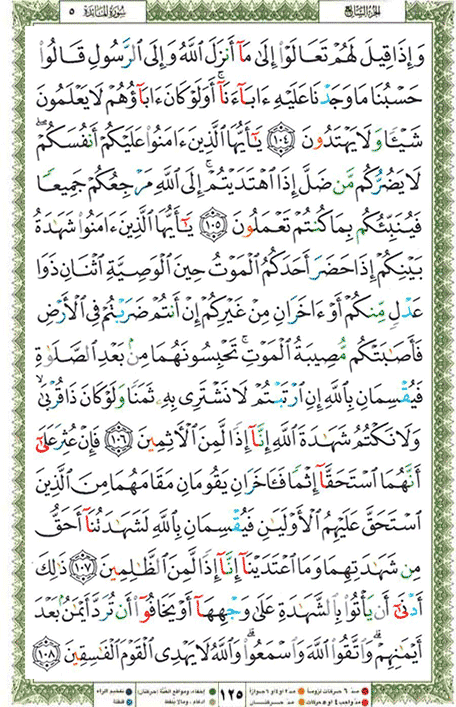 الجزء السابع
سورة المائدة ٥
وَإِذَا قِيلَ لَهُمْ تَعَالَوْا۟ إِلَىٰ مَآ أَنزَلَ ٱللَّهُ وَإِلَى ٱلرَّسُولِ قَالُوا۟
حَسْبُنَا مَا وَجَدْنَا عَلَيْهِ ءَابَآءَنَآ ۚ أَوَلَوْ كَانَ ءَابَآؤُهُمْ لَا يَعْلَمُونَ
شَيْـًٔا وَلَا يَهْتَدُونَ ١٠٤ يَـٰٓأَيُّهَا ٱلَّذِينَ ءَامَنُوا۟ عَلَيْكُمْ أَنفُسَكُمْ ۖ
لَا يَضُرُّكُم مَّن ضَلَّ إِذَا ٱهْتَدَيْتُمْ ۚ إِلَى ٱللَّهِ مَرْجِعُكُمْ جَمِيعًا
فَيُنَبِّئُكُم بِمَا كُنتُمْ تَعْمَلُونَ ١٠٥ يَـٰٓأَيُّهَا ٱلَّذِينَ ءَامَنُوا۟ شَهَـٰدَةُ
بَيْنِكُمْ إِذَا حَضَرَ أَحَدَكُمُ ٱلْمَوْتُ حِينَ ٱلْوَصِيَّةِ ٱثْنَانِ ذَوَا
عَدْلٍ مِّنكُمْ أَوْ ءَاخَرَانِ مِنْ غَيْرِكُمْ إِنْ أَنتُمْ ضَرَبْتُمْ فِى ٱلْأَرْضِ
فَأَصَـٰبَتْكُم مُّصِيبَةُ ٱلْمَوْتِ ۚ تَحْبِسُونَهُمَا مِنۢ بَعْدِ ٱلصَّلَوٰةِ
فَيُقْسِمَانِ بِٱللَّهِ إِنِ ٱرْتَبْتُمْ لَا نَشْتَرِى بِهِۦ ثَمَنًا وَلَوْ كَانَ ذَا قُرْبَىٰ ۙ
وَلَا نَكْتُمُ شَهَـٰدَةَ ٱللَّهِ إِنَّآ إِذًا لَّمِنَ ٱلْـَٔاثِمِينَ ١٠٦ فَإِنْ عُثِرَ عَلَىٰٓ
أَنَّهُمَا ٱسْتَحَقَّآ إِثْمًا فَـَٔاخَرَانِ يَقُومَانِ مَقَامَهُمَا مِنَ ٱلَّذِينَ
ٱسْتَحَقَّ عَلَيْهِمُ ٱلْأَوْلَيَـٰنِ فَيُقْسِمَانِ بِٱللَّهِ لَشَهَـٰدَتُنَآ أَحَقُّ
مِن شَهَـٰدَتِهِمَا وَمَا ٱعْتَدَيْنَآ إِنَّآ إِذًا لَّمِنَ ٱلظَّـٰلِمِينَ ١٠٧ ذَٰلِكَ
أَدْنَىٰٓ أَن يَأْتُوا۟ بِٱلشَّهَـٰدَةِ عَلَىٰ وَجْهِهَآ أَوْ يَخَافُوٓا۟ أَن تُرَدَّ أَيْمَـٰنٌۢ بَعْدَ
أَيْمَـٰنِهِمْ ۗ وَٱتَّقُوا۟ ٱللَّهَ وَٱسْمَعُوا۟ ۗ وَٱللَّهُ لَا يَهْدِى ٱلْقَوْمَ ٱلْفَـٰسِقِينَ ١٠٨
١٢٥
مد ٦ حركات لزوما
مد ٢ او ٤ او ٦ جوازا
مد واجب ٤ او ٥ حركات
مد حركتان
إخفاء، ومواقع الغنة (حركتان)
ادغام، وما لا يلفظ
تفخيم الراء
قلقلة